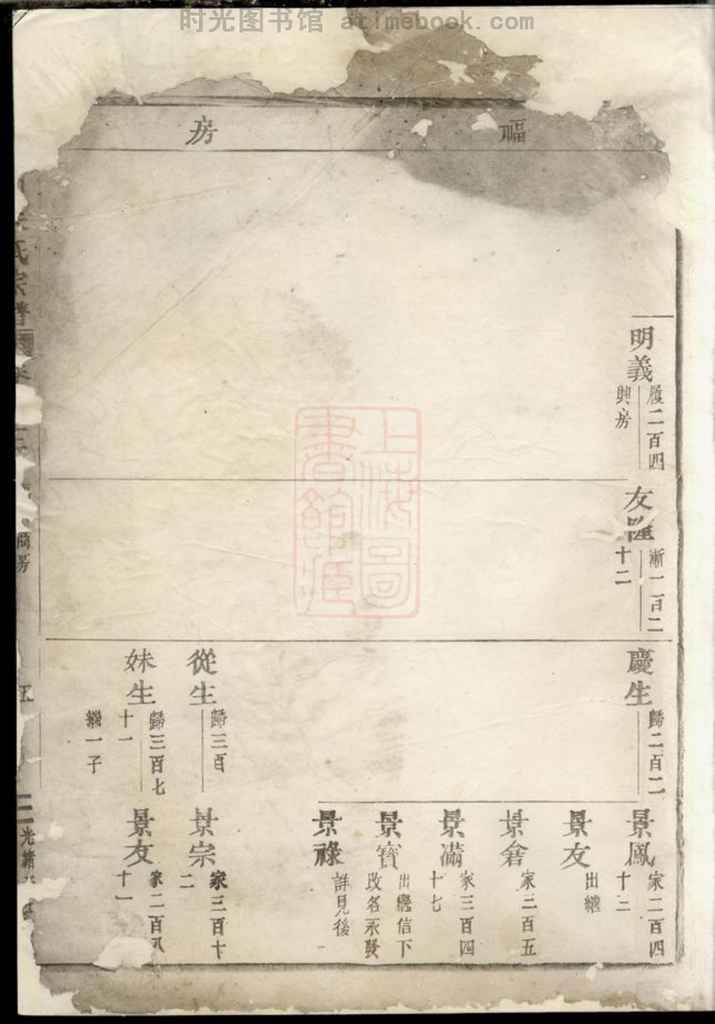 时光图书馆 atimebook.com
福房
明義
履二百四
興房
友隆
漸一百二
十二
慶生
歸二百二
從生
歸三百
妹生
歸三百七
十一
繼一子
景鳳
家二百四
十三
景友
出繼
景倉
家二百五
景滿
家三百四
十七
景寶
出繼信下
改名永發
景祿
詳見後
景宗
家三百十
二
景友
家二百八
十一
氏宗譜
光緒
上海圖書館藏